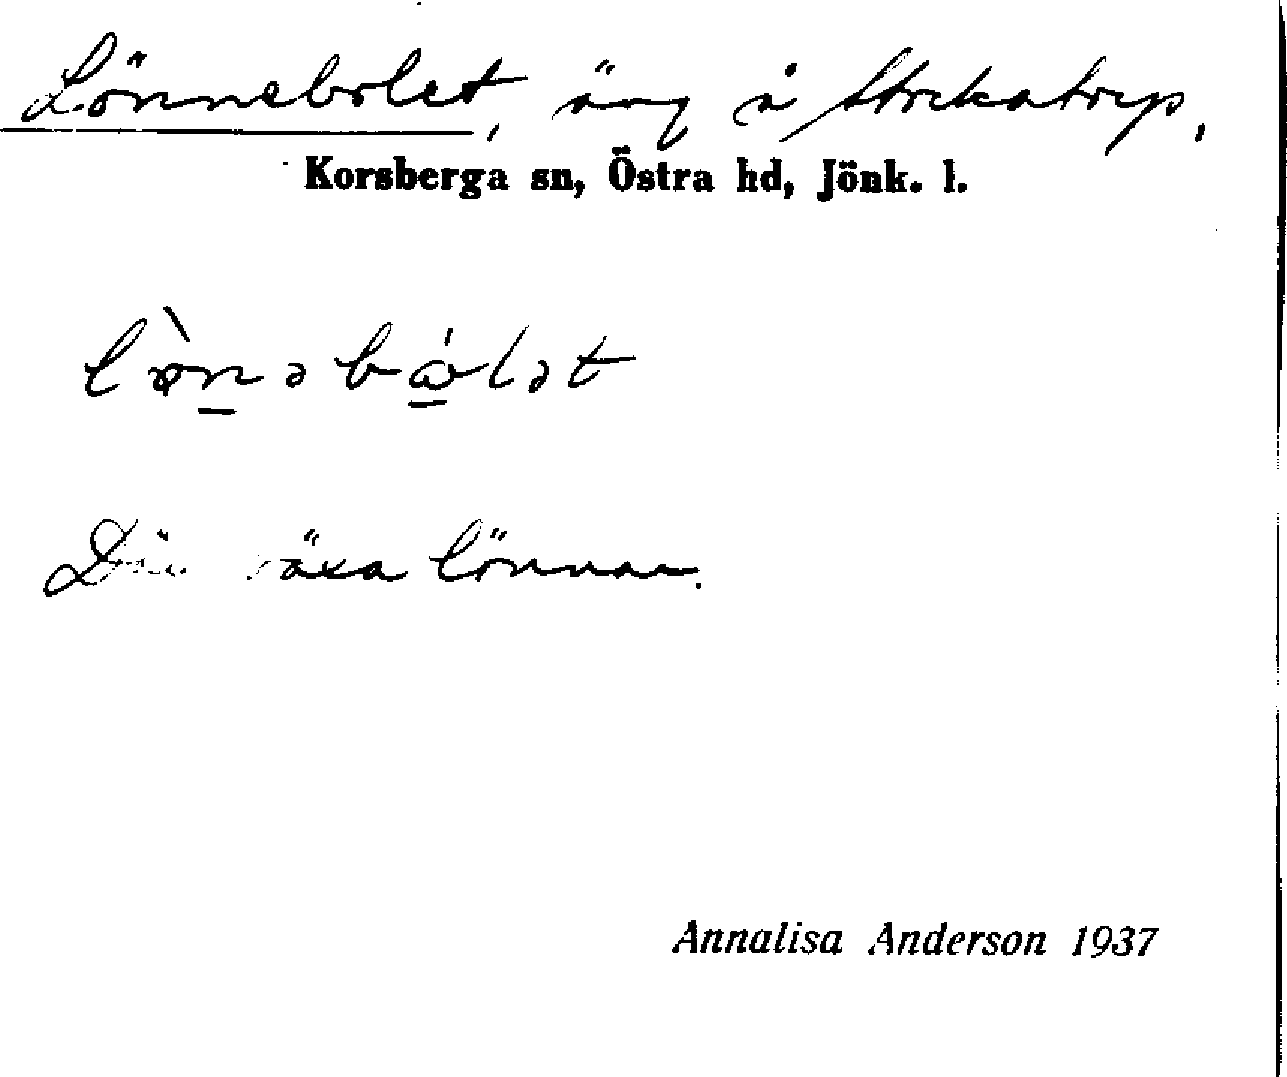 Lönnebolet, äng å Stockatorp,
Korsberga sn, Östra hd, Jönk. l.
växa lönnar.
Annalisa Anderson 1937